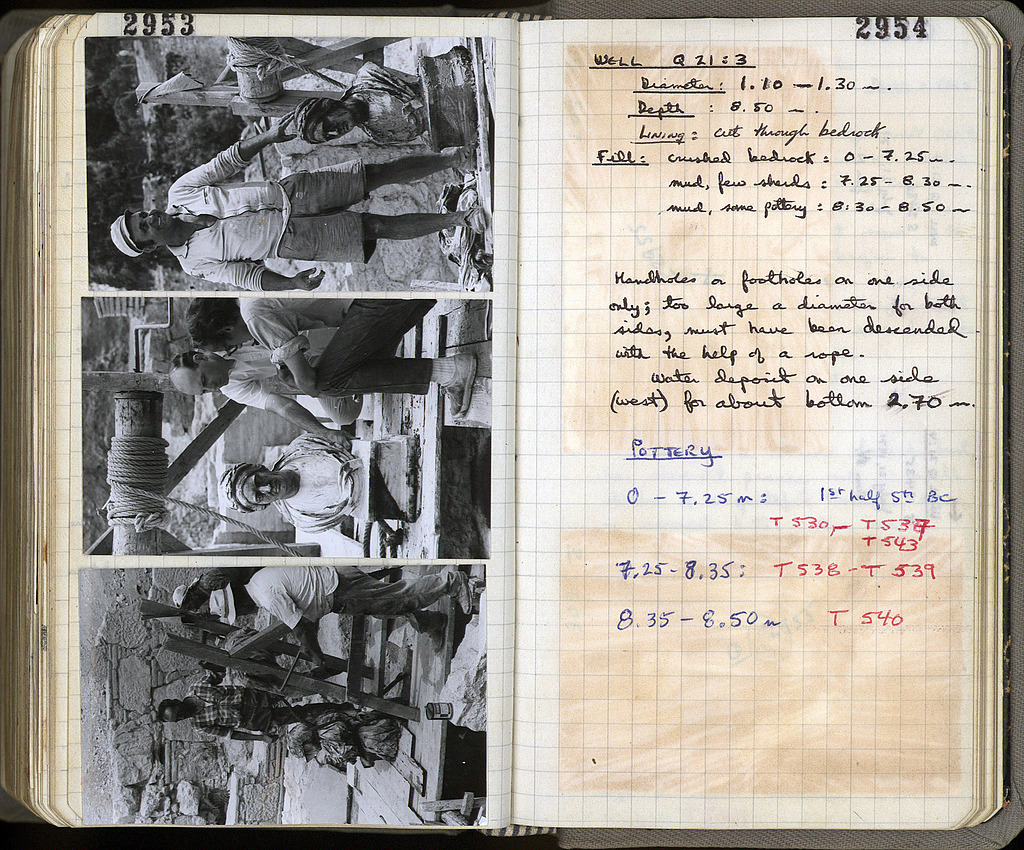 2953
2954
WELL Q 21:3
Diameter: 1.10 — 1.30 m.
Depth : 8.50 m.
LINING: cut through bedrock.
Fill: crushed bedrock: 0 - 7.25 m.
mud, few sherds : 7.25 - 8.30 m.
mud, some pottery : 8:30 - 8.50 m
Handholes or footholes on one side
only; too large a diameter for both
sides, must have been descended
with the help of a rope.
Water deposit on one side
(west) for about bottom 2.70 m.
POTTERY
0 - 7.25 m: 1st half 5th BC
T 530, - T 537
T 543
7.25 - 8.35: T 538 - T 539
8.35 - 8.50 m T 540